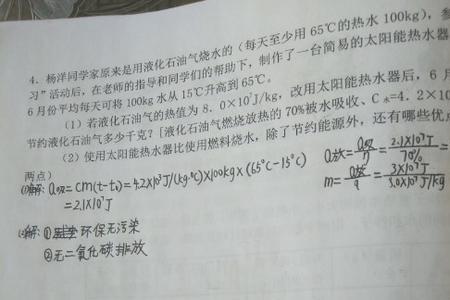 4．杨洋同学家原来是用液化石油气烧水的（每天至少用65℃的热水100kg），参
习”活动后，在老师的指导和同学们的帮助下，制作了一台简易的太阳能热水器
6月份平均每天可将100kg水从15℃升高到65℃。
（1）若液化石油气的热值为8．0×10⁷J/kg，改用太阳能热水器后，6月
节约液化石油气多少千克？［液化石油气燃烧放热的70%被水吸收、C水=4．2×10
（2）使用太阳能热水器比使用燃料烧水，除了节约能源外，还有哪些优
两点）
(1)解：Q吸=cm(t-t₀)=4.2×10³J/(kg·℃)×100kg×(65℃-15℃)
=2.1×10⁷J
Q放=Q吸/η=2.1×10⁷J/70%=
m=Q放/q=3×10⁷J/8.0×10⁷J/kg
(2)解：①环保无污染
②无二氧化碳排放